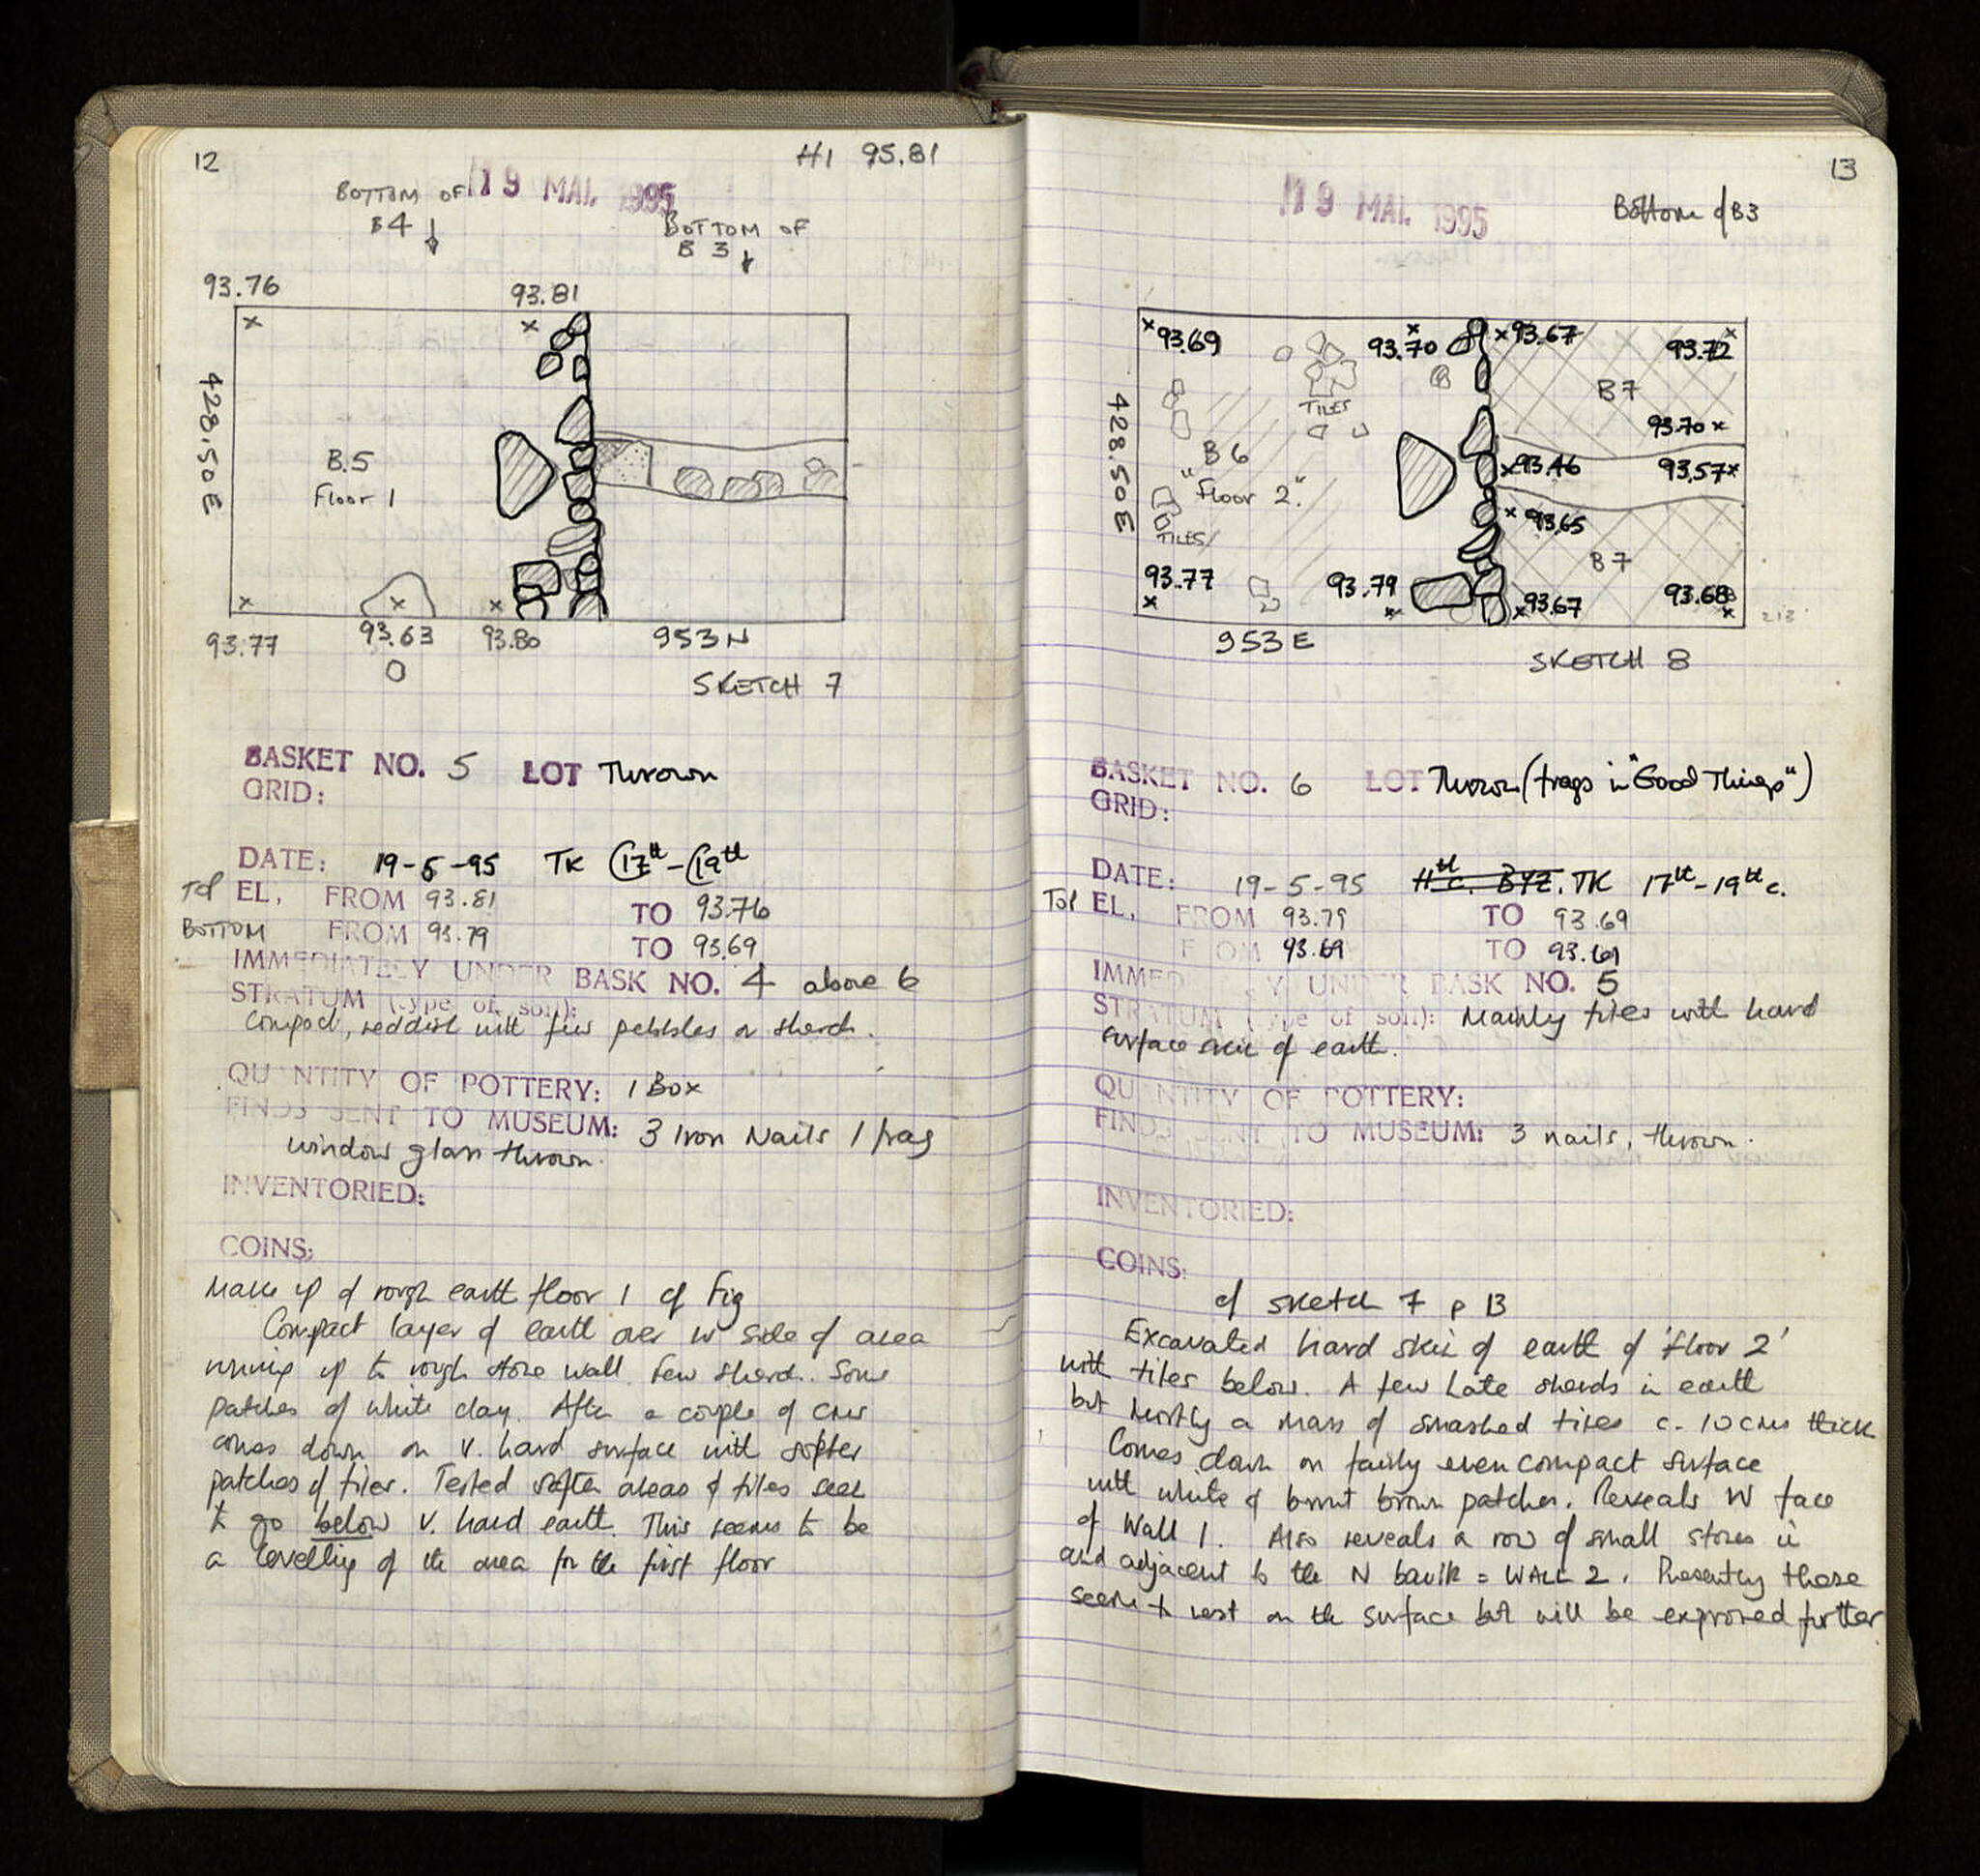 12
H1 95.81
19 MAI. 1995
BOTTOM OF
B4
BOTTOM OF
B 3
93.76
93.81
428.50 E
B.5
Floor 1
93.77
93.63
93.80
953 N
O
SKETCH 7
BASKET NO. 5 LOT Thrown
GRID:
DATE: 19-5-95 TK (17th-(19th
Top EL, FROM 93.81 TO 93.76
BOTTOM FROM 93.79 TO 93.69
IMMEDIATELY UNDER BASK NO. 4 above 6
STRATUM (type of soil):
Compact, reddish with few pebbles or sherds.
QUANTITY OF POTTERY: 1 Box
FINDS SENT TO MUSEUM: 3 Iron Nails 1 frag
window glass thrown.
INVENTORIED:
COINS:
Make up of rough earth floor 1 cf Fig
Compact layer of earth over W side of area
running up to rough stone wall. Few sherds. Some
patches of white clay. After a couple of cms
comes down on v. hard surface with softer
patches of tiles. Tested softer areas of tiles seem
to go below v. hard earth. This seems to be
a levelling of the area for the first floor
13
19 MAI. 1995
Bottom of B3
93.69
93.70
93.67
93.72
TILES
B7
93.70
428.50 E
B6
"Floor 2."
93.46
93.57
93.65
TILES
B7
93.77
93.79
93.67
93.68
953 E
SKETCH 8
BASKET NO. 6 LOT Thrown (frags in "Good Things")
GRID:
DATE: 19-5-95 11th c. BYZ. TK 17th-19th c.
Top EL, FROM 93.79 TO 93.69
FROM 93.69 TO 93.61
IMMEDIATELY UNDER BASK NO. 5
STRATUM (type of soil): Mainly tiles with hard
surface skin of earth.
QUANTITY OF POTTERY:
FINDS SENT TO MUSEUM: 3 nails, thrown.
INVENTORIED:
COINS:
cf sketch 7 p 13
Excavated hard skin of earth of 'floor 2'
with tiles below. A few Late sherds in earth
but mostly a mass of smashed tiles c. 10 cms thick
Comes down on fairly even compact surface
with white & burnt brown patches. Reveals W face
of Wall 1. Also reveals a row of small stones in
and adjacent to the N baulk = WALL 2. Presently these
seem to rest on the surface but will be exposed further